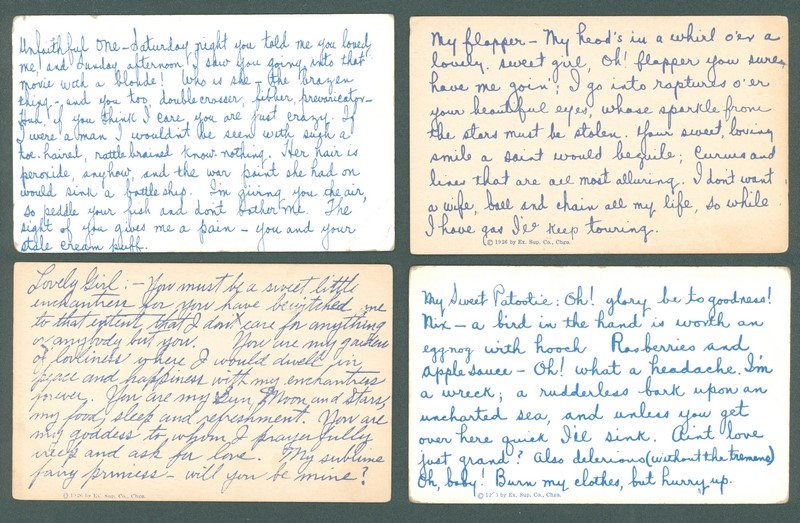 Unfaithful One – Saturday night you told me you loved
me, and Sunday afternoon I saw you going into that
movie with a blonde! Who is she – the brazen
thing – and you too, double crosser, fibber, prevaricator –
Huh, if you think I care, you are just crazy. If
I were a man I wouldn't be seen with such a
toe-haired, rattle brained know-nothing. Her hair is
peroxide, anyhow, and the war paint she had on
would sink a battle ship. I'm giving you the air,
so peddle your fish and dont bother me. The
sight of you gives me a pain – you and your
stale cream puff.
My flapper – My head's in a whirl o'er a
lovely, sweet girl, Oh! flapper you sure
have me goin'; I go into raptures o'er
your beautiful eyes, whose sparkle from
the stars must be stolen. Your sweet, loving
smile a saint would beguile; Curves and
lines that are all most alluring. I don't want
a wife, ball and chain all my life, so while
I have gas I'll keep touring.
© 1928 by Ex. Sup. Co., Chgo.
Lovely Girl: – You must be a sweet little
enchantress for you have bewitched me
to that extent, that I don't care for anything
or anybody but you. You are my garden
of loveliness where I would dwell in
peace and happiness with my enchantress
forever. You are my Sun, Moon and Stars,
my food, sleep and refreshment. You are
my goddess to whom I prayerfully
weep and ask for love. My sublime
fairy princess – will you be mine?
© by Ex. Sup. Co., Chgo.
My Sweet Patootie: Oh! glory be to goodness!
Nix – a bird in the hand is worth an
eggnog with hooch Rasberries and
applesauce – Oh! what a headache. I'm
a wreck; a rudderless bark upon an
uncharted sea, and unless you get
over here quick I'll sink. Aint love
just grand? Also delerious (without the tremens)
Oh, baby! Burn my clothes, but hurry up.
© by Ex. Sup. Co., Chgo.